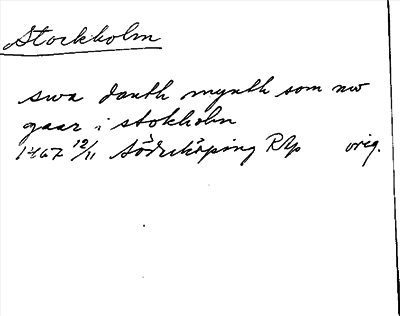 Stockholm
swa danth mynth som nw
gaar i stokholm
1467 12/11 Söderköping RAp orig.